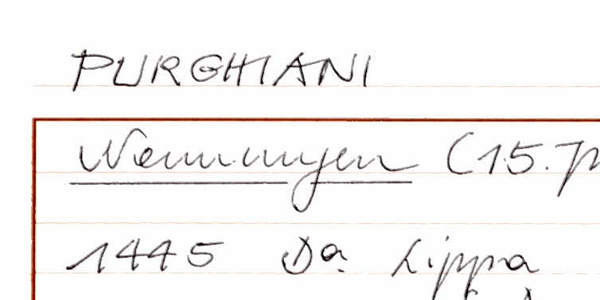 PURGHIANI
Nennungen (15. J
1445 Da. Lippa